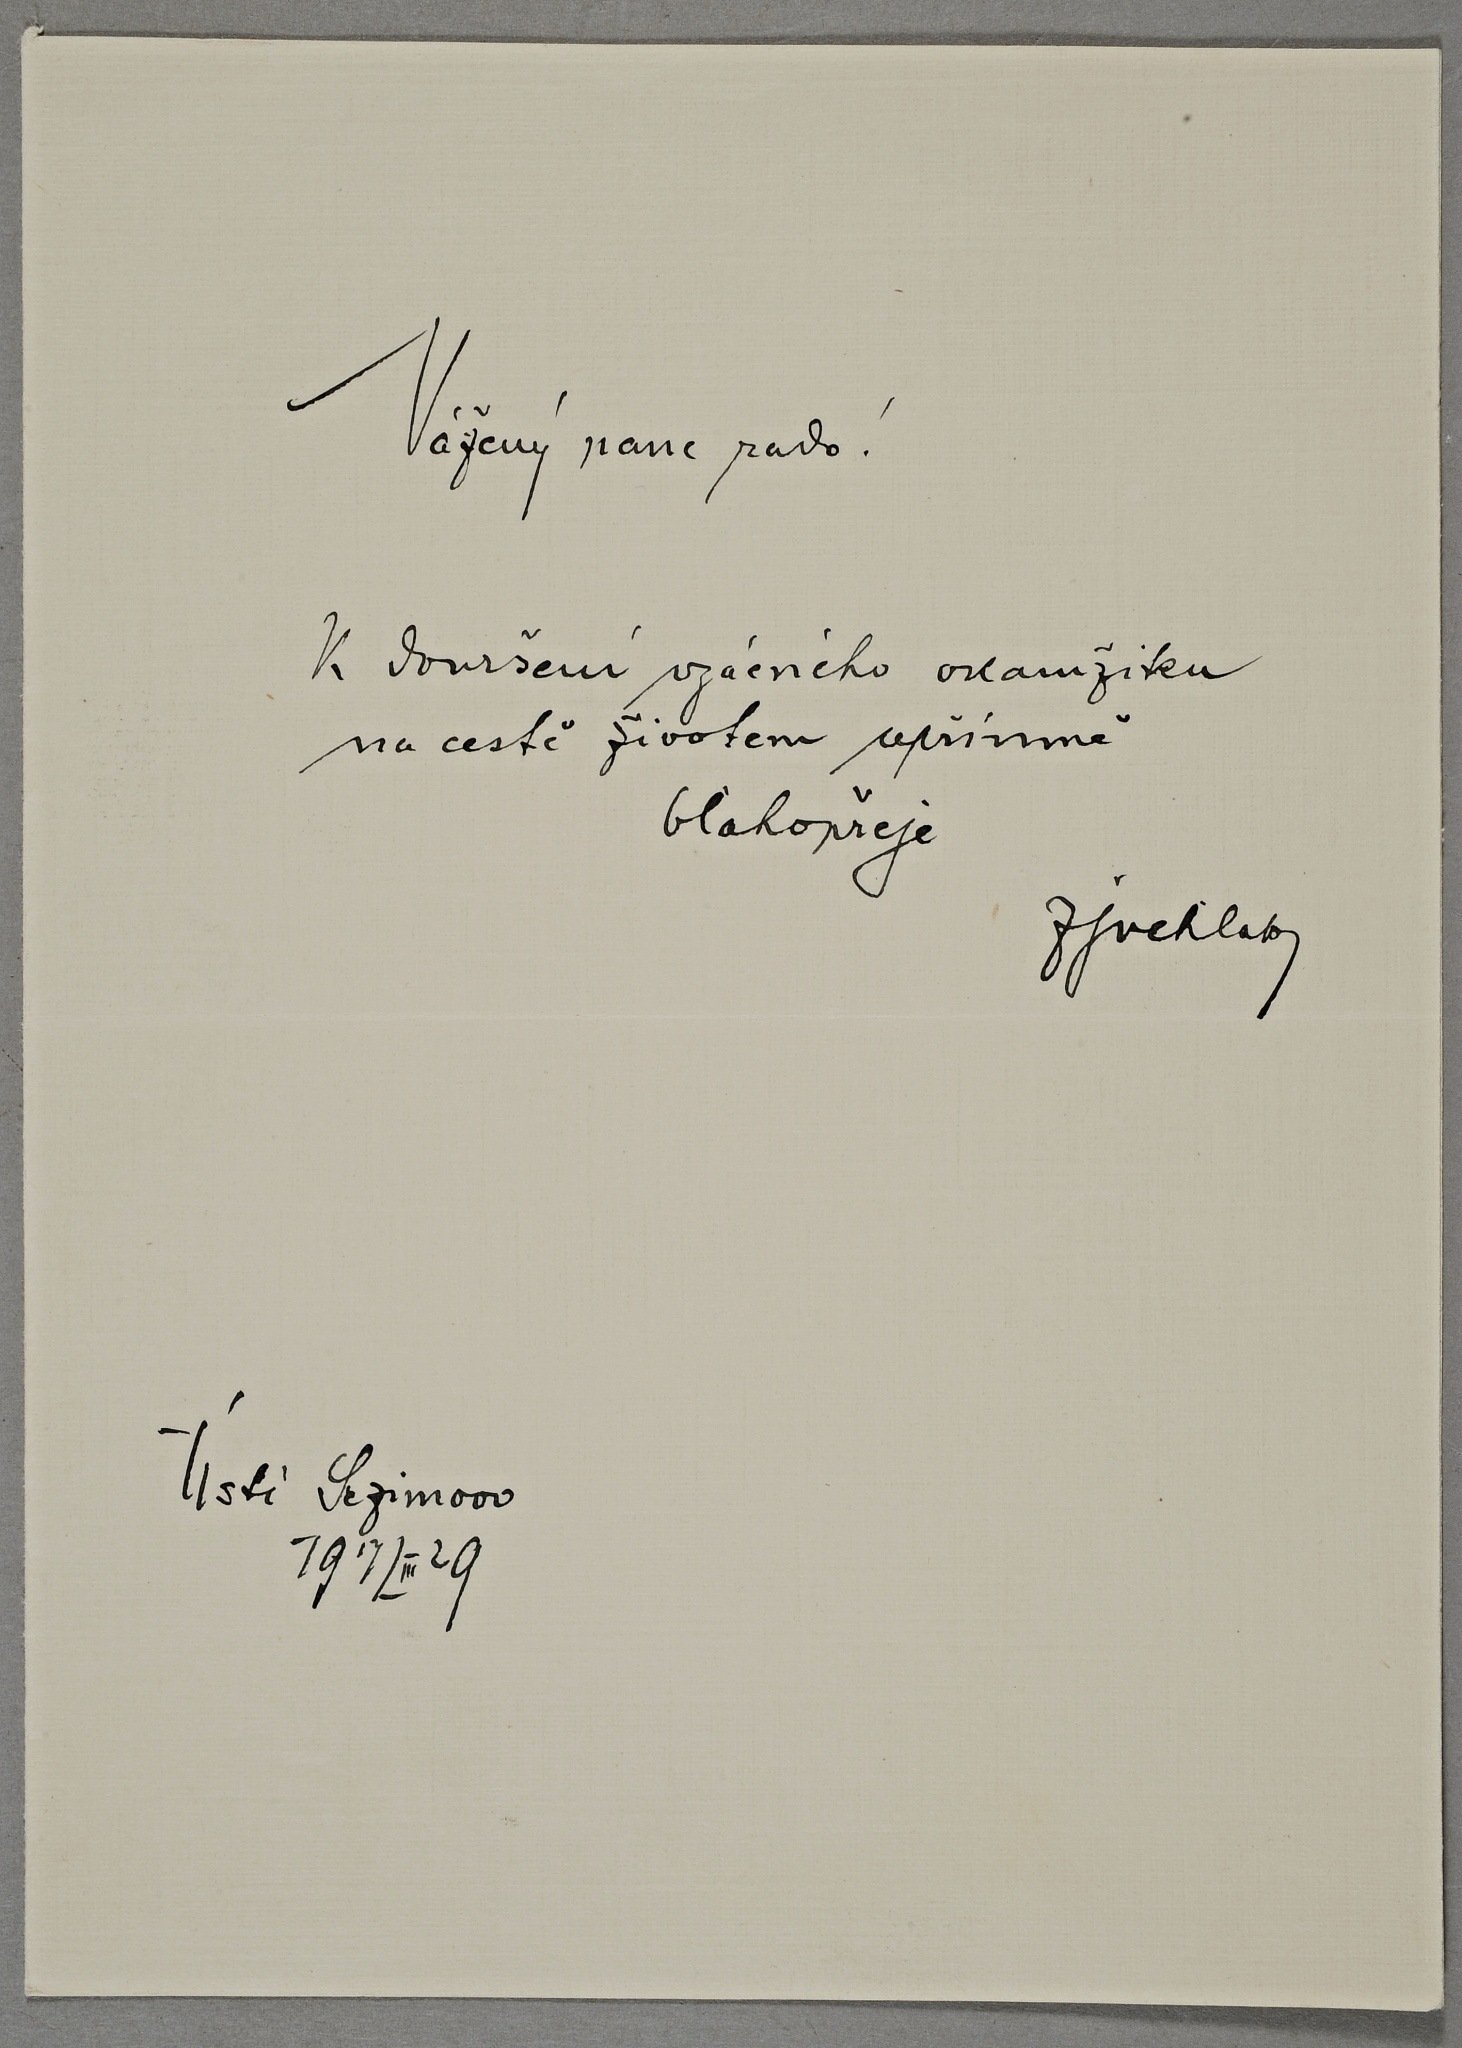 Vážený pane rado!
K dovršení vzácného okamžiku
na cestě životem upřímně
blahopřeje
Ústí Sezimovo